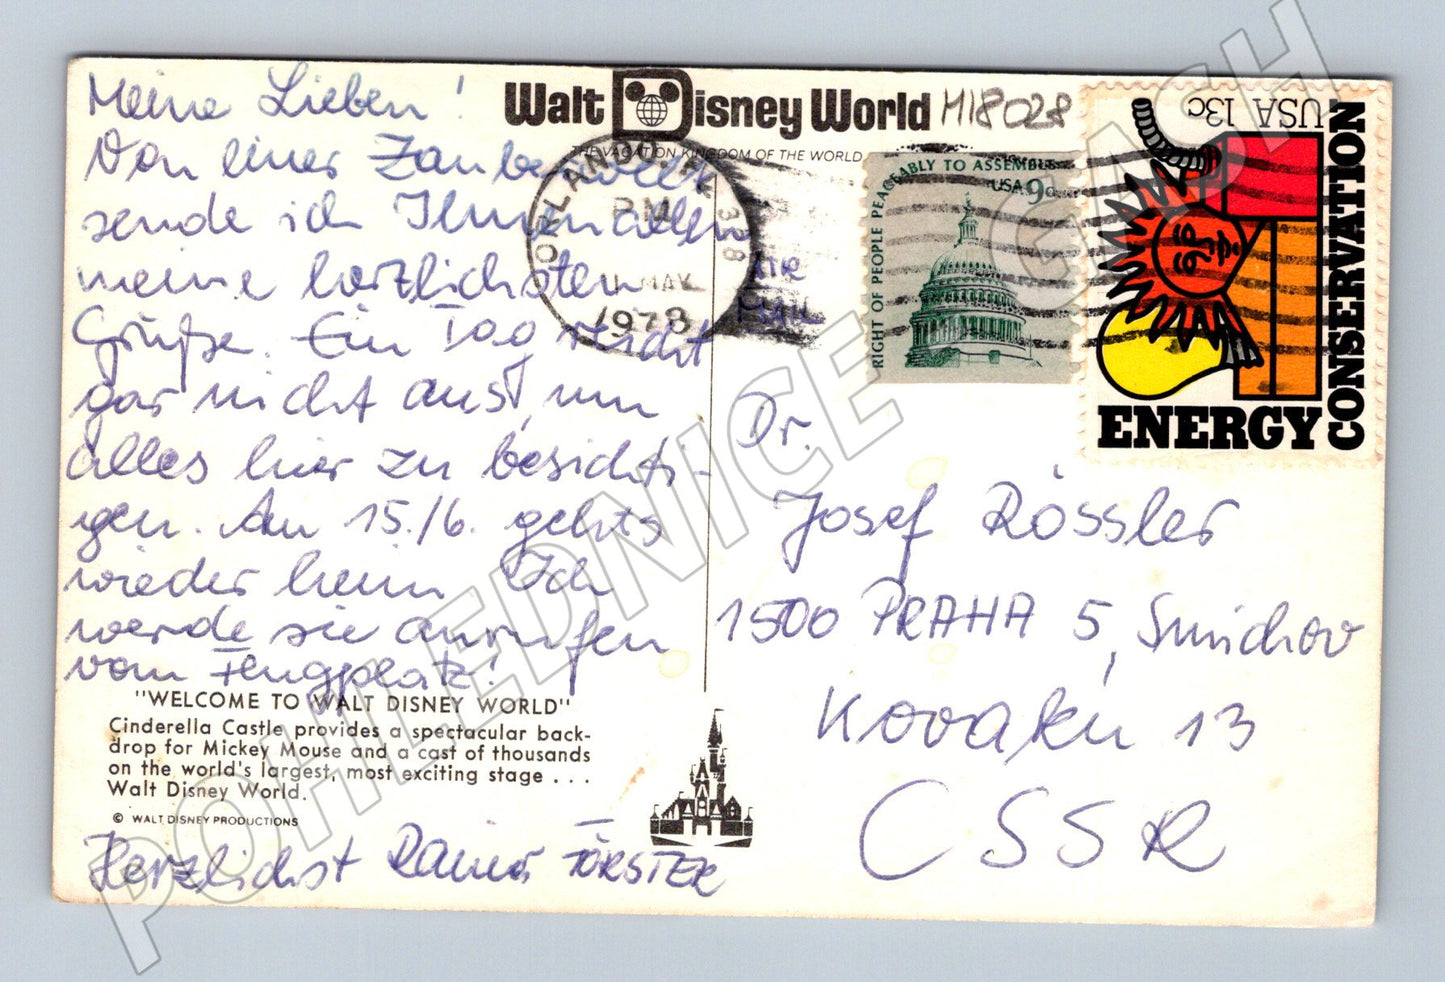 Meine Lieben!
Von einer Zauberwelt
sende ich Ihnen allen
meine herzlichsten
Grüße. Ein Tag reicht
gar nicht aus, um
alles hier zu besichti-
gen. Am 15./6. gehts
wieder heim. Ich
werde sie anrufen
vom Flugplatz!
"WELCOME TO WALT DISNEY WORLD"
Cinderella Castle provides a spectacular back-
drop for Mickey Mouse and a cast of thousands
on the world's largest, most exciting stage . . .
Walt Disney World.
© WALT DISNEY PRODUCTIONS
Herzlichst Rainer FÖRSTER
Walt Disney World
THE VACATION KINGDOM OF THE WORLD
M18028
ORLANDO, FL 328
PM
MAY
1978
RIGHT OF PEOPLE PEACEABLY TO ASSEMBLE
USA 9c
USA 13c
ENERGY
CONSERVATION
Dr.
Josef Rössler
1500 PRAHA 5, Smichov
Kováků 13
ČSSR
POHLEDNICE GASH